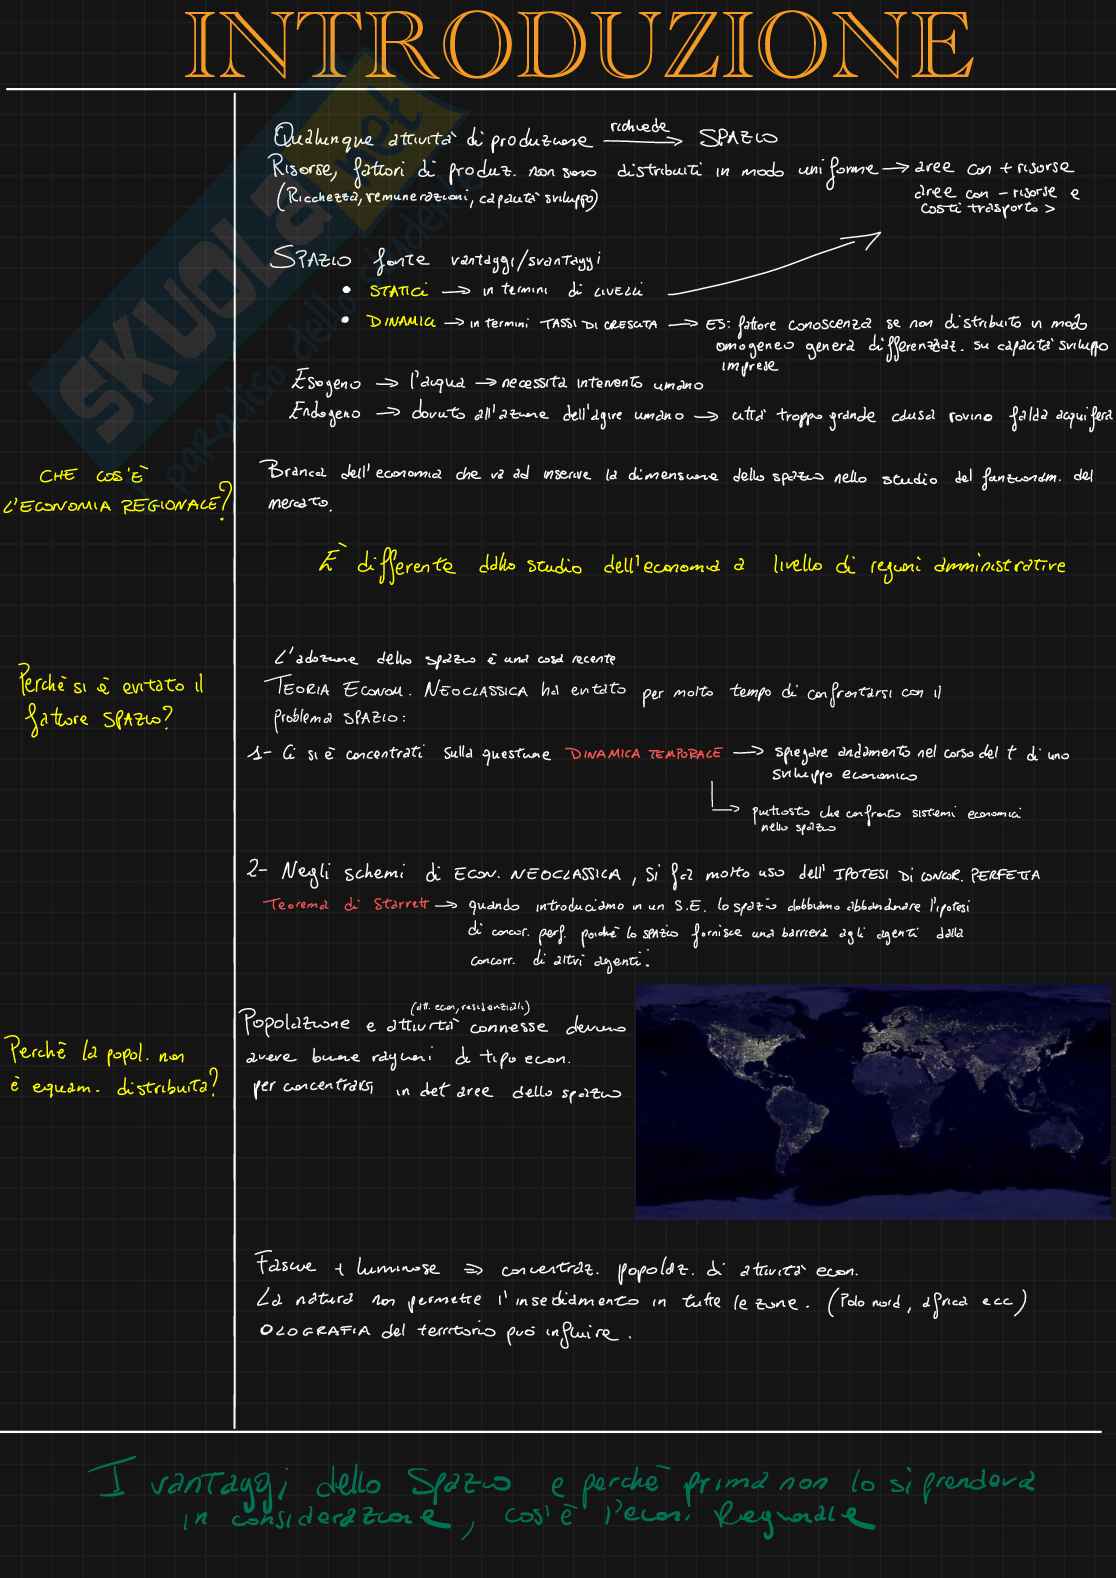 INTRODUZIONE
Qualunque attività di produzione richiede → SPAZIO
Risorse, fattori di produz. non sono distribuiti in modo uniforme → aree con + risorse
(Ricchezza, remunerazioni, capacità sviluppo)
aree con - risorse e
costi trasporto >
SPAZIO fonte vantaggi/svantaggi
• STATICI → in termini di LIVELLI
• DINAMICI → in termini TASSI DI CRESCITA → ES: fattore conoscenza se non distribuito in modo
omogeneo genera differenziaz. su capacità sviluppo
imprese
Esogeno → l'acqua → necessita intervento umano
Endogeno → dovuto all'azione dell'agire umano → città troppo grande causa rovino falda acquifera
CHE COS'È
L'ECONOMIA REGIONALE?
Branca dell'economia che va ad inserire la dimensione dello spazio nello studio del funzionam. del
mercato.
È differente dallo studio dell'economia a livello di regioni amministrative
Perchè si è evitato il
fattore SPAZIO?
L'adozione dello spazio è una cosa recente
TEORIA ECONOM. NEOCLASSICA ha evitato per molto tempo di confrontarsi con il
problema SPAZIO:
1- Ci si è concentrati sulla questione DINAMICA TEMPORALE → spiegare andamento nel corso del t di uno
sviluppo economico
→ piuttosto che confronto sistemi economici
nello spazio
2- Negli schemi di ECON. NEOCLASSICA, si fa molto uso dell'IPOTESI DI CONCOR. PERFETTA
Teorema di Starrett → quando introduciamo in un S.E. lo spazio dobbiamo abbandonare l'ipotesi
di concor. perf. poichè lo spazio fornisce una barriera agli agenti dalla
concorr. di altri agenti.
Perchè la popol. non
è equam. distribuita?
(att. econ, residenziali)
Popolazione e attività connesse devono
avere buone ragioni di tipo econ.
per concentrarsi in det aree dello spazio
Fasce + luminose ⇒ concentraz. popolaz. di attività econ.
La natura non permette l'insediamento in tutte le zone. (Polo nord, africa ecc)
OLOGRAFIA del territorio può influire.
I vantaggi dello Spazio e perchè prima non lo si prendeva
in considerazione, cos'è l'econ. Regionale
SKUOLA.net